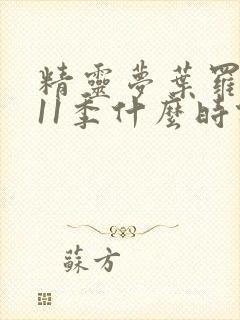 精靈夢葉羅
11季什麼時
蘇方